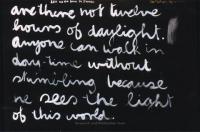 are there not twelve
hours of daylight.
anyone can walk in
day-time without
stumbling because
he sees the light
of this world.